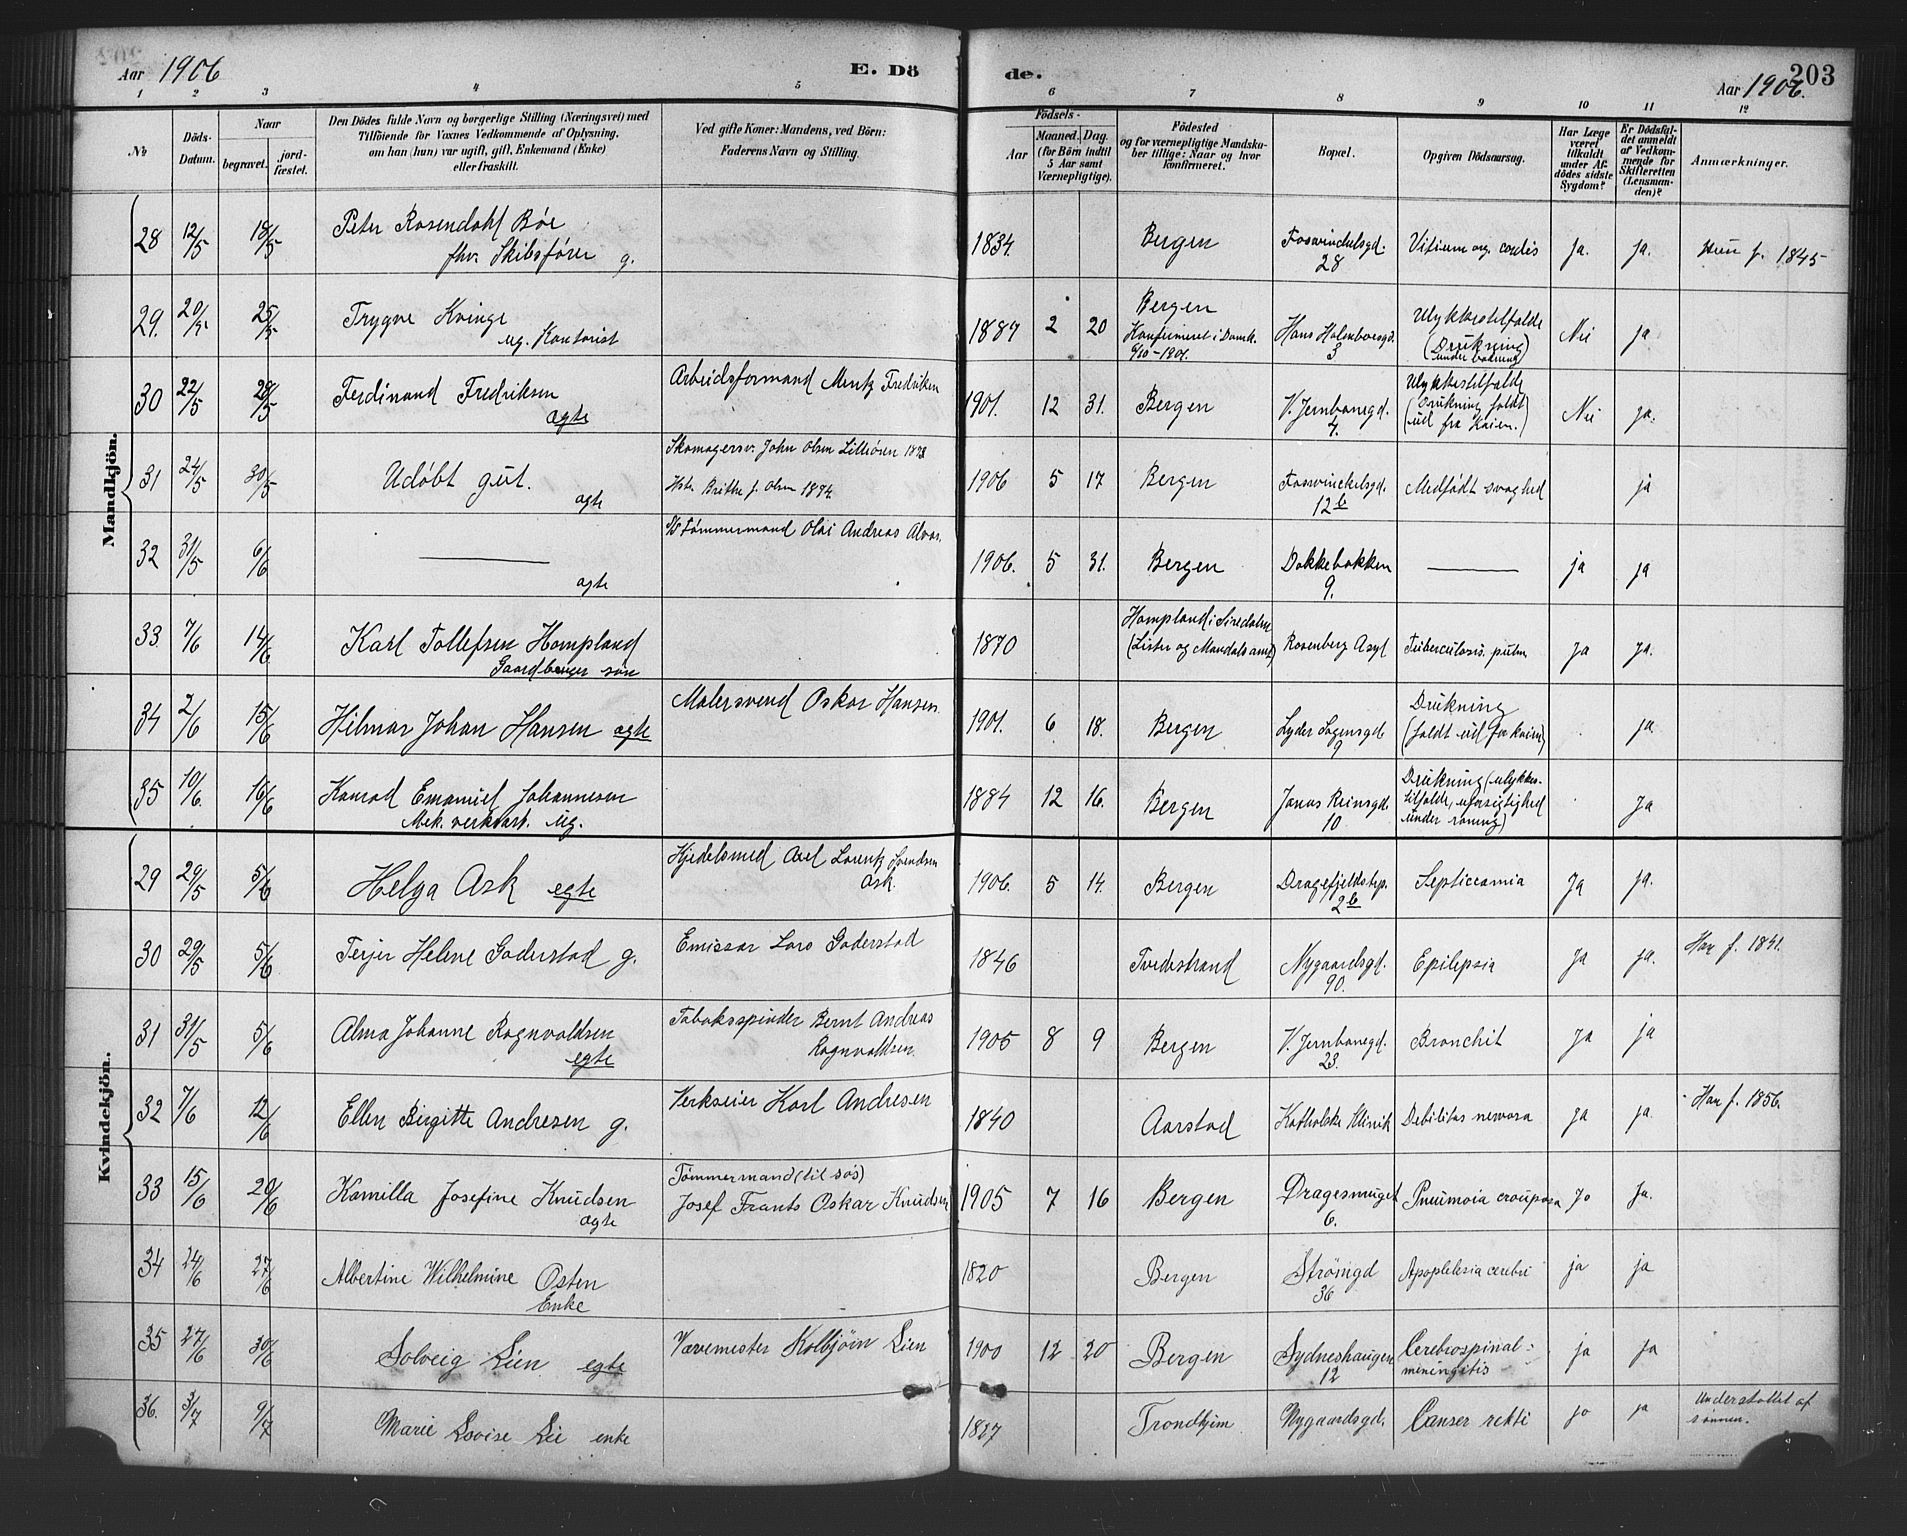 Aar 1906
E. Dö
de.
203
Aar 1906.
1 2 3 4 5 6 7 8 9 10 11 12
No
Döds-Datum.
Naar
begravet.
jord-fæstet.
Den Dödes fulde Navn og borgerlige Stilling (Næringsvei) med
Tilföiende for Voxnes Vedkommende af Oplysning,
om han (hun) var ugift, gift, Enkemand (Enke)
eller fraskilt.
Ved gifte Koner: Mandens, ved Börn:
Faderens Navn og Stilling.
Födsels-
Aar
Maaned. Dag.
(for Börn indtil
5 Aar samt
Værnepligtige).
Födested
og for værnepligtige Mandskaber tillige: Naar og hvor
konfirmeret.
Bopæl.
Opgiven Dödsaarsag.
Har Læge
været
tilkaldt
under Afdödes sidste
Sygdom?
Er Dödsfaldet anmeldt
af Vedkommende for
Skifteretten
(Lensmanden)?
Anmærkninger.
Mandkjön.
28 12/5 18/5 Peter Rosendahl Böe
fhv. Skibsfører g.
1834. Bergen Foswinckelsgd. 28 Vitium org. cordis ja. ja. Hun f. 1845
29. 20/5 25/5 Trygve Kvinge
ug. Kontorist
1887 2 20 Bergen
Konfirmeret i Domk.
6/10-1901.
Hans Holmboesgd. 3
Ulykkestilfælde
(Drukning
under badning)
Nei ja
30 22/5 28/5 Ferdinand Fredriksen
ægte
Arbeidsformand Mentz Fredriksen
1901. 12 31. Bergen V. Jernbanegd. 4.
Ulykkestilfælde
(Drukning faldt
ud fra Kaien.)
Nei ja.
31 24/5 30/5 Udøbt gut.
ægte
Skomagersv. John Olsen Lilleören 1878
Hstr. Brithe f. Olsen 1874.
1906 5 17 Bergen Foswinckelsgd. 12b Medfødt svaghed ja
32 31/5 6/6 ———
ægte
Tömmermand Olai Andreas
1906. 5 31. Bergen Dokkebakken 9. ——— ja ja
33 7/6 14/6 Karl Tollefsen Hompland
Gaardbruger søn
1870 Hompland i Siredalen
(Lister og Mandals amt)
Rosenberg Asyl Tuberculosis. pulm ja ja.
34 2/6 15/6 Hilmar Johan Hansen ægte
Malersvend Oskar Hansen.
1901. 6 18. Bergen Lyder Sagensgd. 9
Drukning
(faldt ud fra kaien)
ja
35 10/6 16/6 Konrad Emanuel Johannesen
Mek. verkstarb. ug.
1884 12 16. Bergen Jonas Reinsgd. 10
Drukning (ulykkes-
tilfælde, uforsigtighed
under roning)
Ja
Kvindekjön.
29 29/5 5/6 Helga Ask egte
Kjedelsmed Axel Lorentz Svendsen
Ask.
1906. 5 14. Bergen Dragefjeldstrp. 2b Septiccæmia Ja ja.
30 29/5 5/6 Terjer Helene Goderstad g.
Emissær Lars Goderstad
1846 Tvedestrand Nygaardsgd. 90. Epilepsia Ja ja. Han f. 1841.
31 31/5 5/6 Alma Johanne Rognvaldsen
egte
Tobaksspinder Bernt Andreas
Rognvaldsen.
1905 8 9 Bergen V. Jernbanegd. 23. Bronchit Ja ja
32 7/6 12/6 Ellen Birgitte Andresen g.
Verkseier Karl Andresen
1840 Aarstad Katholske Klinik Debilitas nervosa ja ja. Han f. 1856.
33 15/6 20/6 Kamilla Josefine Knudsen
ægte
Tömmermand (til søs)
Josef Frants Oskar Knudsen
1905 7 16 Bergen Dragesmuget 6. Pneumoia crouposa Ja Ja.
34 24/6 27/6 Albertine Wilhelmine Osten
Enke
1820 Bergen Strömgd 36 Apoplelesia cerebri ja ja
35 27/6 30/6 Solveig Lien egte
Vævemester Kolbjörn Lien
1900 12 20 Bergen Sydneshaugen 12
Cerebrospinal-
meningitis
ja ja
36. 3/7 9/7 Marie Lovise Lie enke
1827 Trondhjem Nygaardsgd. Canser rekti ja ja
Understøttet af
sønnen.